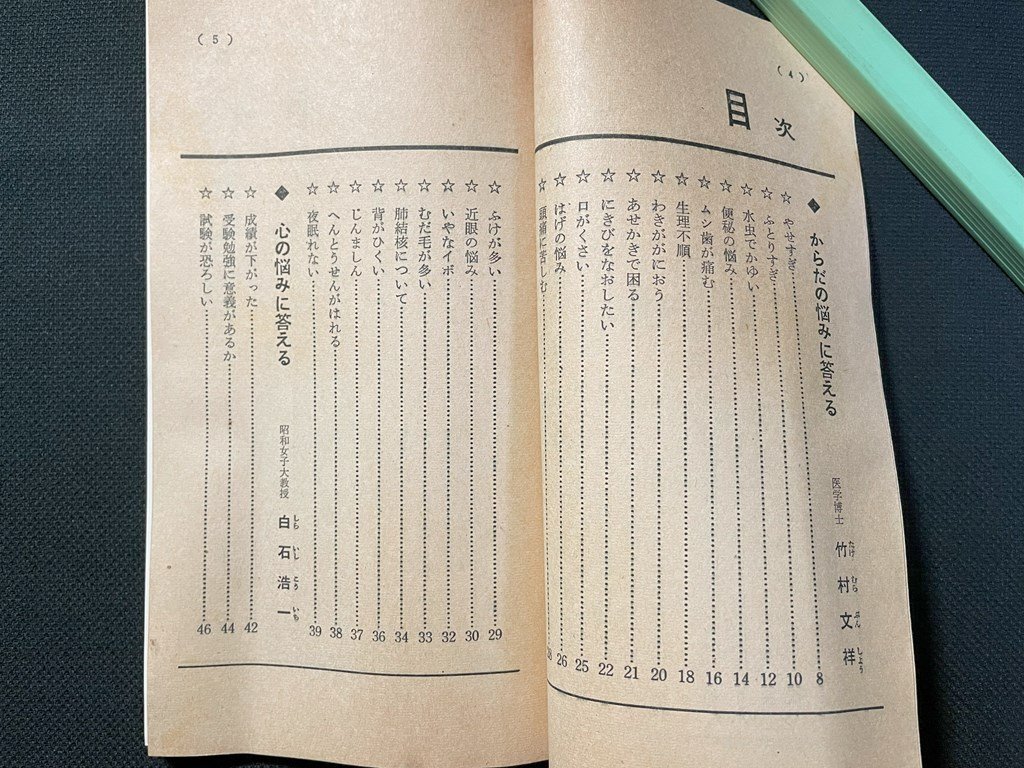 (4)
目次
◆ からだの悩みに答える 医学博士 竹村文祥
たけむらぶんしょう
☆ やせすぎ 8
☆ ふとりすぎ 10
☆ 水虫でかゆい 12
☆ 便秘の悩み 14
☆ ムシ歯が痛む 16
☆ 生理不順 18
☆ わきががにおう 20
☆ あせかきで困る 21
☆ にきびをなおしたい 22
☆ 口がくさい 25
☆ はげの悩み 26
☆ 頭痛に苦しむ 28
(5)
☆ ふけが多い 29
☆ 近眼の悩み 30
☆ いやなイボ 32
☆ むだ毛が多い 33
☆ 肺結核について 34
☆ 背がひくい 36
☆ じんましん 37
☆ へんとうせんがはれる 38
☆ 夜眠れない 39
◆ 心の悩みに答える 昭和女子大教授 白石浩一
しらいしこういち
☆ 成績が下がった 42
☆ 受験勉強に意義があるか 44
☆ 試験が恐ろしい 46